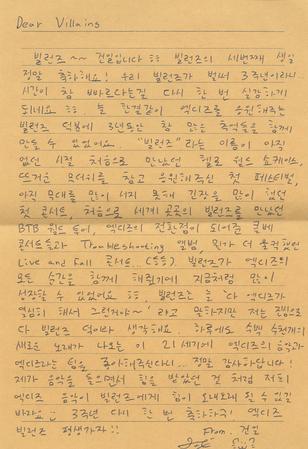 Dear Villains
빌런즈~~ 건일입니다 ㅎㅎ 빌런즈의 세번째 생일
정말 축하해요! 우리 빌런즈가 벌써 3주년이라니..
시간이 참 빠르다는걸 다시 한 번 실감하기
되네요 ㅎㅎ 늘 한결같이 엑디즈를 응원해주는
빌런즈 덕분에 3년동안 참 많은 추억들을 함께
만들 수 있었어요. "빌런즈"라는 이름이 아직
없던 시절 처음으로 만났던 헬로 월드 쇼케이스,
뜨거운 무더위를 참고 응원해주신 첫 페스티벌,
아직 무대를 많이 서지 못해 긴장을 많이 했던
첫 콘서트, 처음으로 세계 곳곳의 빌런즈를 만났던
BTB 월드 투어, 엑디즈의 전환점이 되어준 클베
콘서트들과 Troubleshooting 앨범, 뭔가 더 울컥했던
Live and Fall 콘서트.. (등등). 빌런즈가 엑디즈의
모든 순간을 함께 해줬기에 지금처럼 많이
성장할 수 있었어요 ㅎㅎ. 빌런즈는 늘 "다 엑디즈가
열심히 해서 그런거야~" 라고 말하지만 저는 진심으로
다 빌런즈 덕이라 생각해요. 하루에도 수백 수천개의
새로운 노래가 나오는 이 21세기에 엑디즈의 음악과
엑디즈라는 팀을 좋아해주신다니.. 정말 감사합니다!
제가 음악을 들으면서 힘을 받았던 것 처럼 저희
엑디즈 음악이 빌런즈에게 힘이 오래오래 될 수 있길
바라요 ㅎㅎ 3주년 다시 한 번 축하하구! 엑디즈
빌런즈 평생가자!!
From. 건일